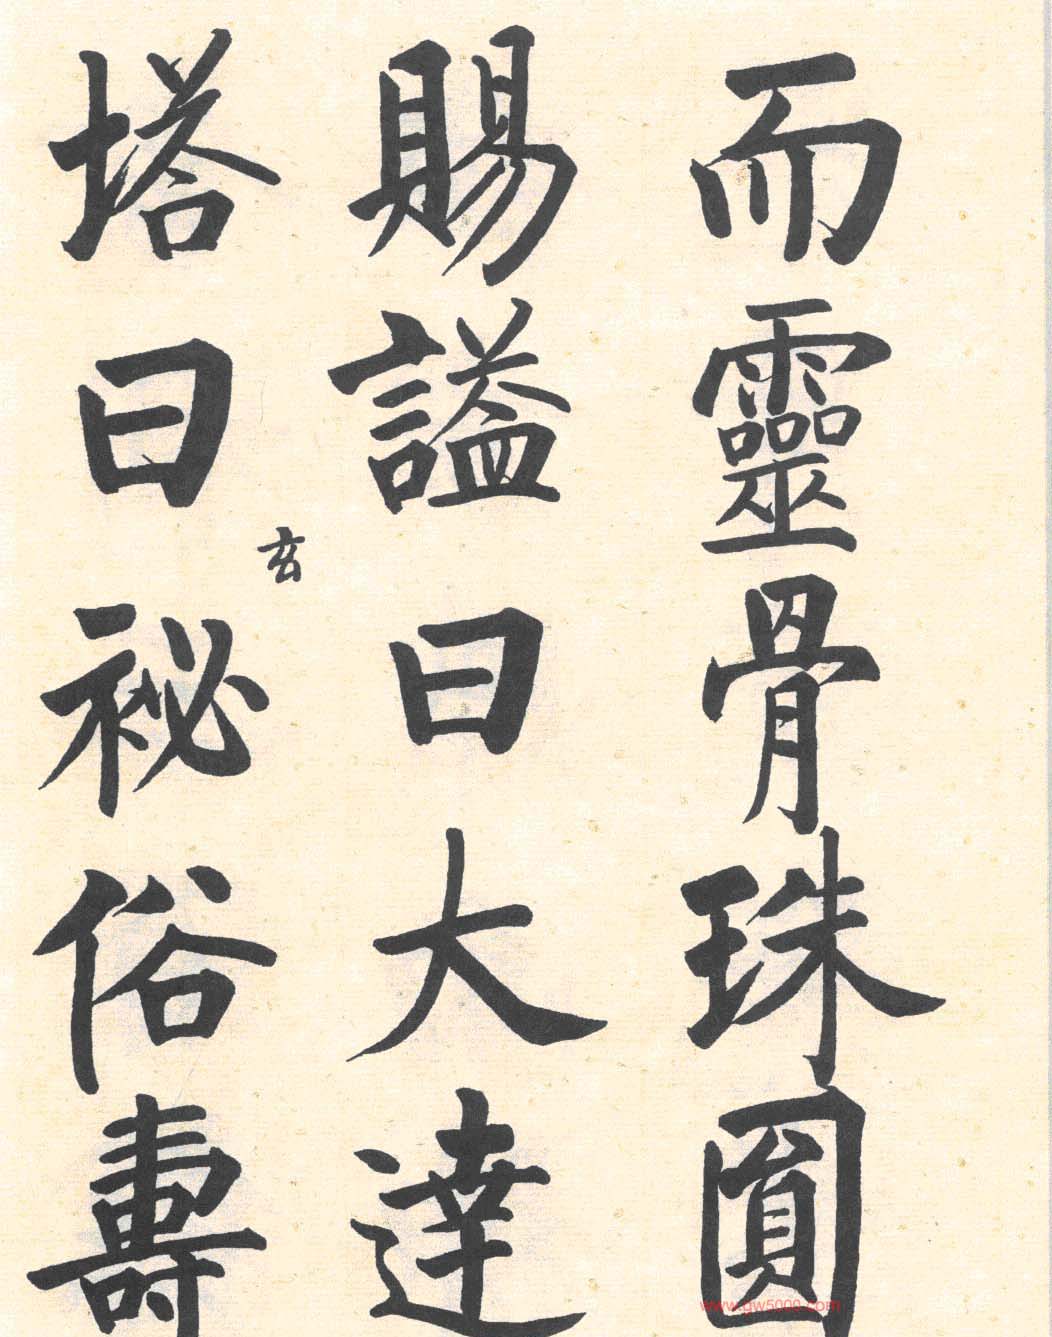 而靈骨珠圓
賜謚曰大達
塔曰祕俗壽
玄
www.gw5000.com